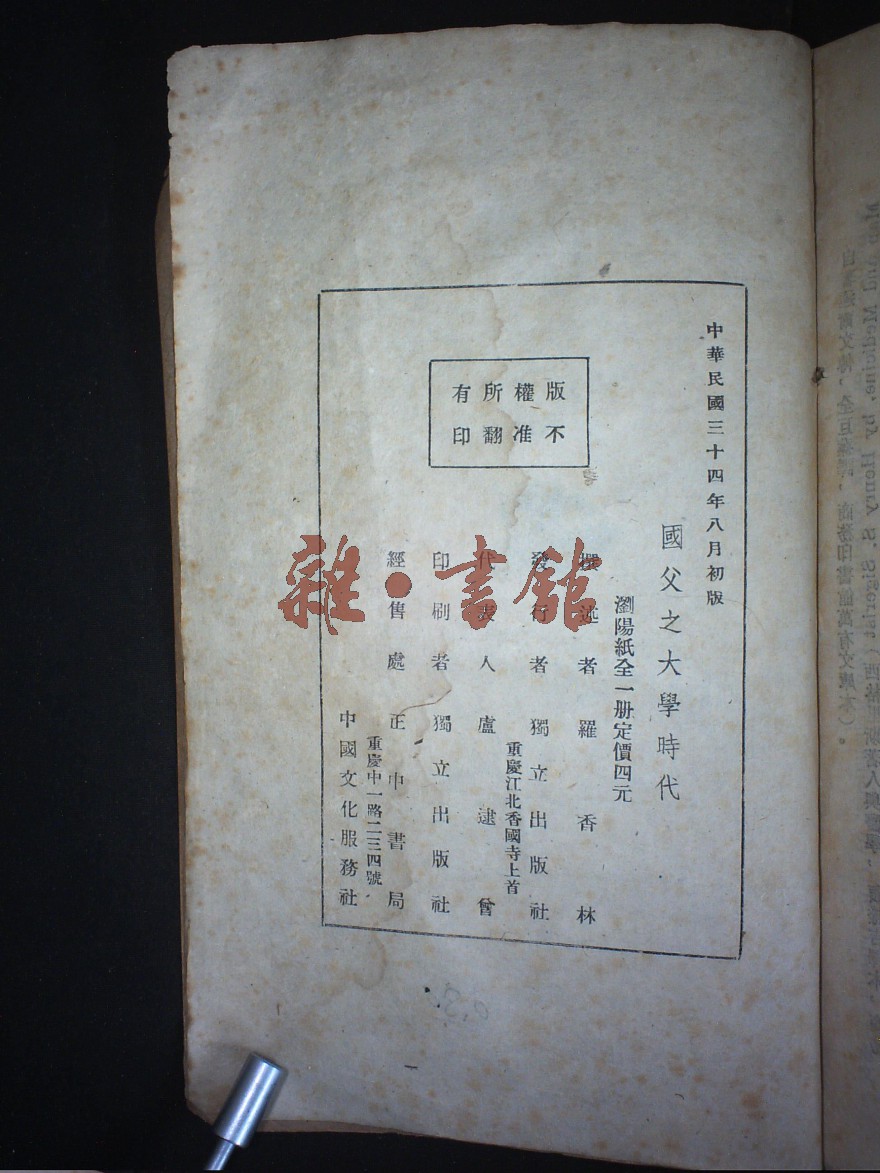 中華民國三十四年八月初版
國父之大學時代
瀏陽紙全一册定價四元
撰述者羅香林
發行者獨立出版社
重慶江北香國寺上首
代表人盧逮曾
印刷者獨立出版社
經售處正中書局
重慶中一路二三四號
中國文化服務社
版權所有
不准翻印
雜·書館
Man and Medicine, by Henry S. Sigerist
商務印書館萬有文庫本）。